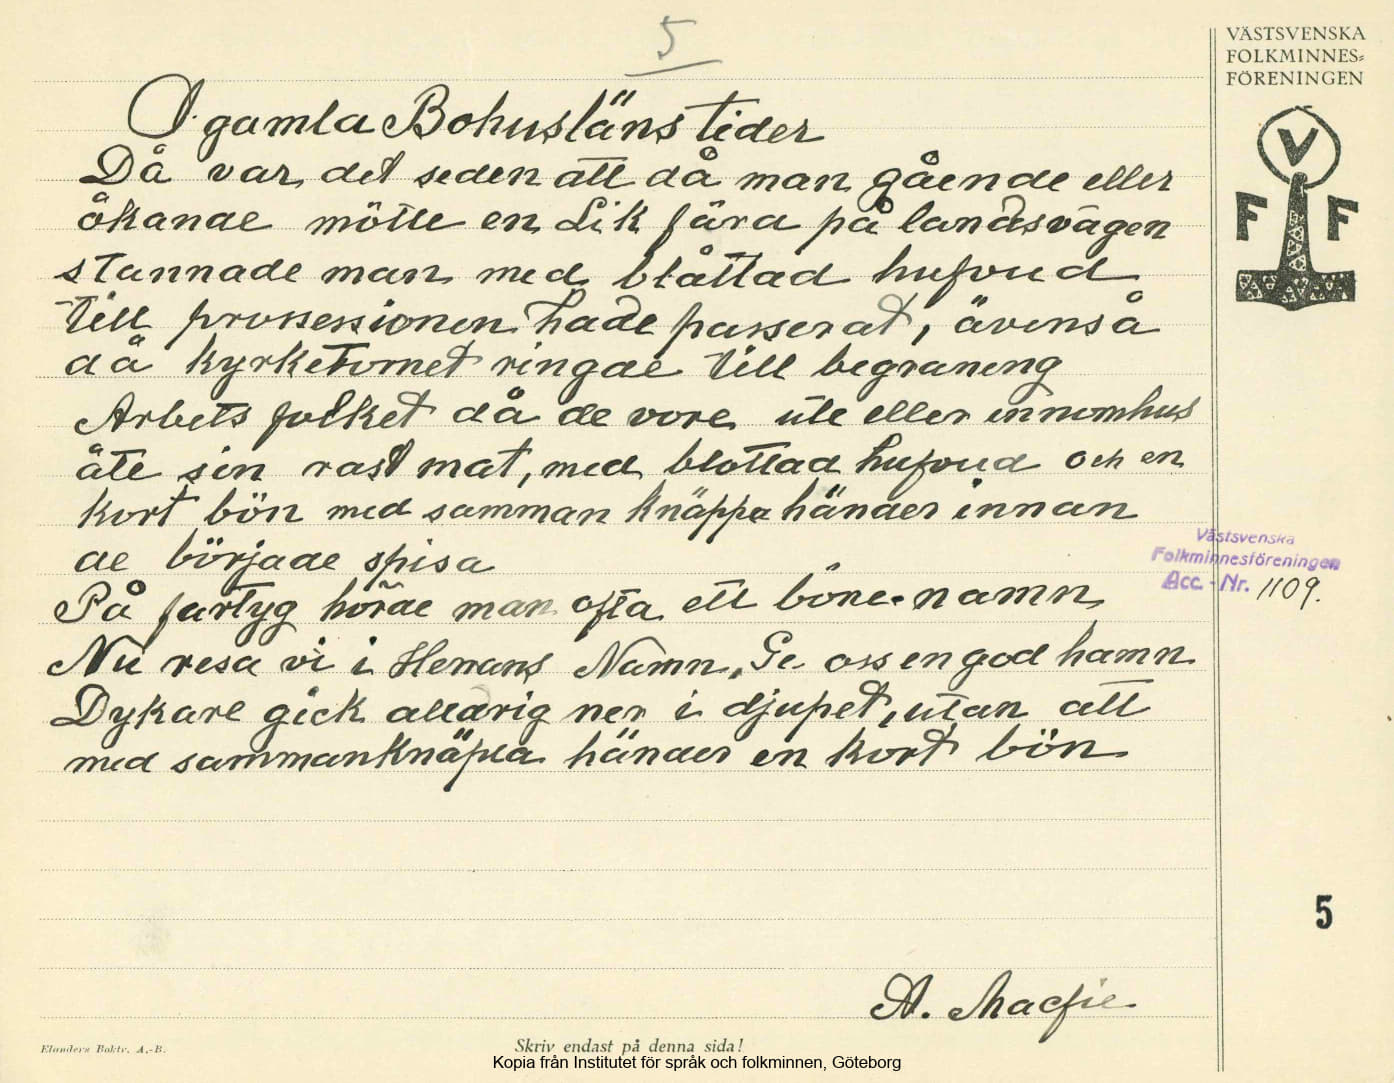 5
VÄSTSVENSKA
FOLKMINNES=
FÖRENINGEN
V
F F
I gamla Bohusläns tider
Då var det seden att då man gående eller
åkande mötte en Lik fära på landsvägen
stannade man med blåttad hufvud
till prossessionen hade passerat, ävenså
då kyrketornet ringde till begravning
Arbets folket då de vore ute eller innomhus
åte sin rast mat, med blottad hufvud och en
kort bön med samman knäppa händer innan
de började spisa
På fartyg hörde man ofta ett böne-namn
Nu resa vi i Herrans Namn, Ge oss en god hamn
Dykare gick alldrig ner i djupet, utan att
med sammanknäpta händer en kort bön
Västsvenska
Folkminnesföreningen
Acc. - Nr. 1109.
5
A. Macfie
Elanders Boktr. A.-B.
Skriv endast på denna sida!
Kopia från Institutet för språk och folkminnen, Göteborg